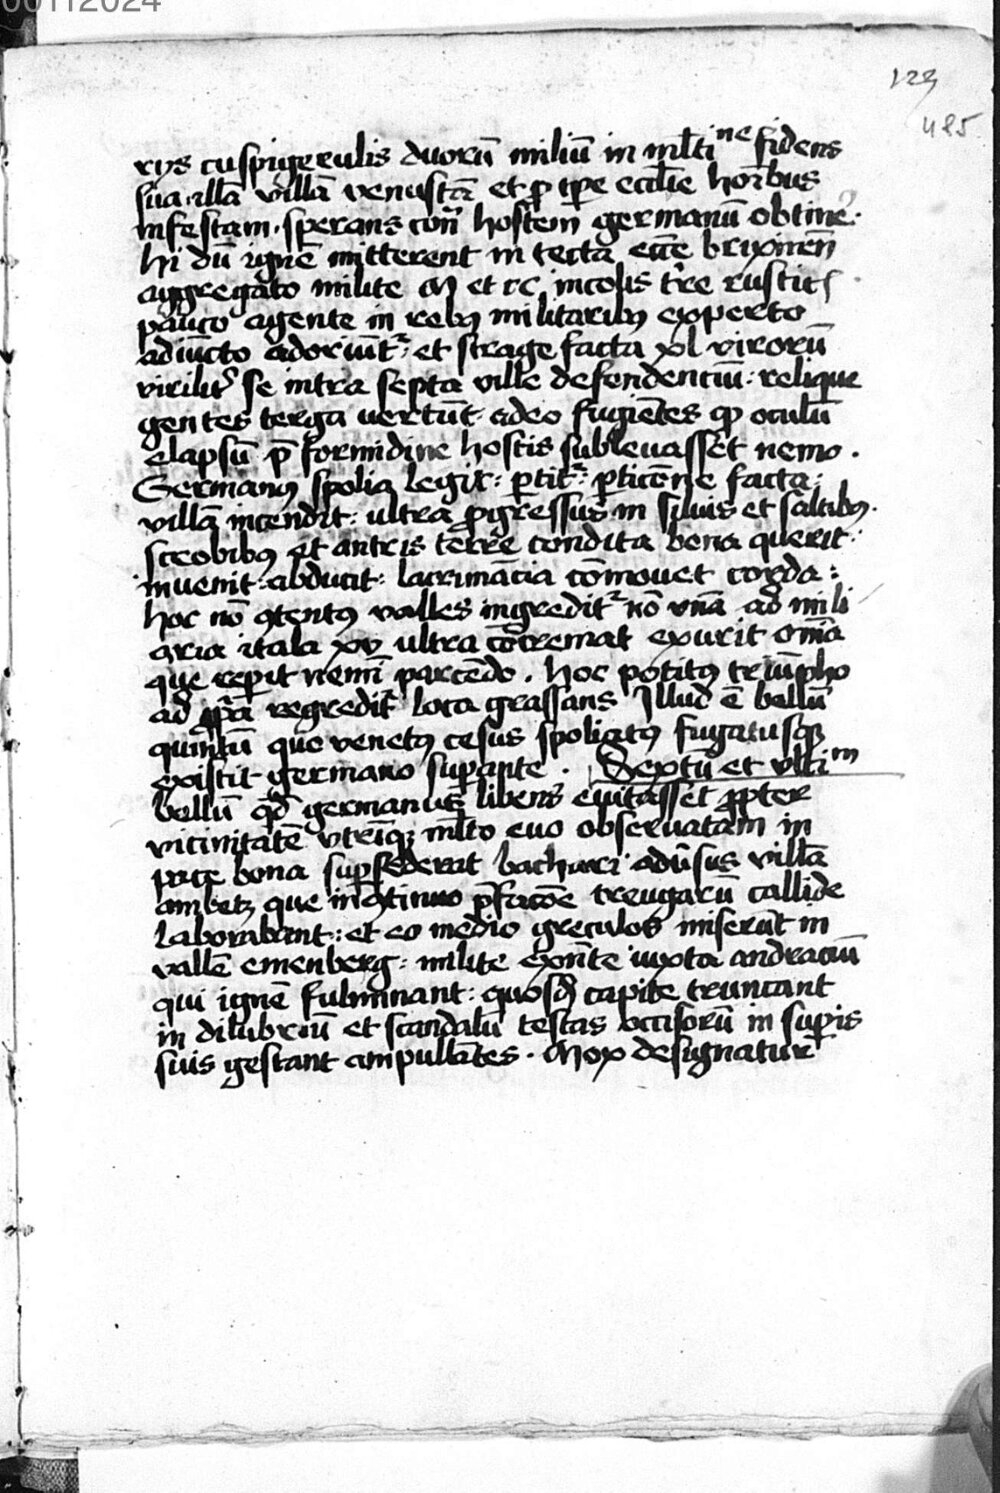 00112024
123
485
rys cuspigerulis duorū miliū in ml̄tine fidens
sua illā villā venustā et p̱ tp̄e eccl̄ie hoīnbus
infestam. sperans cōn̄ hostem germanū obtine˜.
hi dū ignē mitterent in tecta ecc̄e brixinēn̄
aggregato milite M et cc incolis t͛re rustic͛
pauco agente in rebꝰ militaribꝰ experto
adiūcto adoriūt˜: et strage facta xl virorū
virilit͛ se intra septa ville defendenciū: relique
gentes terga vertūt adeo fugiētes qꝫ oculū
elapsū p̄ formidine hostis subleuasset nemo.
Germanꝰ spolia legit: ꝑtit˜: ꝑticōne facta:
villā incendit: ultra ꝓgressus in siluis et saltibꝰ.
scobibꝰ et antris terre condita bona querit:
inuenit: abducit: lacrimācia cōmouet corda:
hoc nō ꝯtentꝰ valles ingredit˜ nō vnā ad mili
aria itala xv ultra cōcremat exurit om̄ia
que repit nemī parcēdo. hoc potitꝰ triūpho
ad ꝓp̄a regredit˜ loca grassans Illud ē bellū
quintū quo venetꝰ cesus spoliatꝰ fugatusqꝫ
existit germano supante. Sextū et vlti͞m
bellū qđ germanus libens euitasset ꝓpter
vicinitatē vtriqꝫ ml̄to euo obseruatam in
pace bona supsederat adūsus villā
ambetz que incꝯtinuo p̄facōe treugarū callide
laborabant: et eo medio greculos miserūt in
vallē emenberg: milite exn̄te iuxta andraciū
qui ignē fulminant: quosđ capite truncant
in dilubriū et scandalū testas occisorū in supis
suis gestant ampullātes. Mox designatur